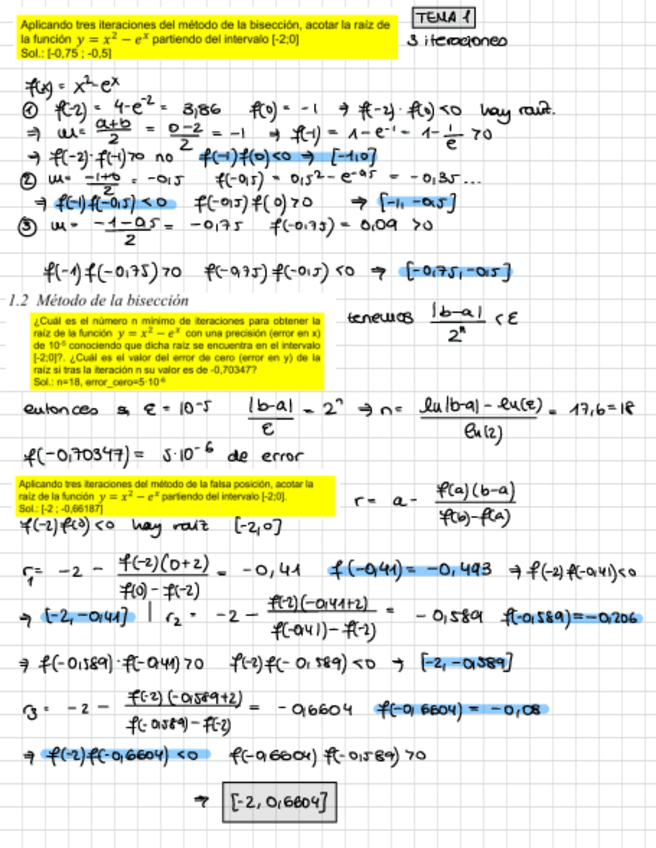 Aplicando tres iteraciones del método de la bisección, acotar la raíz de
la función y = x² − eˣ partiendo del intervalo [-2;0]
Sol.: [-0,75 ; -0,5]
TEMA 1
3 iteraciones
f(x) = x² - eˣ
① f(-2) = 4 - e⁻² = 3,86   f(0) = -1 ⇒ f(-2) · f(0) <0 hay raíz.
⇒ m = (a+b)/2 = (0-2)/2 = -1 ⇒ f(-1) = 1 - e⁻¹ - 1 - 1/e > 0
→ f(-2) · f(-1) >0 no   f(-1) f(0) <0 ⇒ [-1,0]
② m = (-1+0)/2 = -0,5   f(-0,5) = 0,5² - e^-0,5 = -0,35...
⇒ f(-1) f(-0,5) <0   f(-0,5) f(0) >0 ⇒ [-1, -0,5]
③ m = (-1-0,5)/2 = -0,75   f(-0,75) = 0,09 >0
f(-1) f(-0,75) >0   f(-0,75) f(-0,5) <0 ⇒ [-0,75, -0,5]
1.2 Método de la bisección
¿Cuál es el número n mínimo de iteraciones para obtener la
raíz de la función y = x² − eˣ con una precisión (error en x)
de 10⁻⁵ conociendo que dicha raíz se encuentra en el intervalo
[-2;0]?. ¿Cuál es el valor del error de cero (error en y) de la
raíz si tras la iteración n su valor es de -0,70347?
Sol.: n=18, error_cero=5·10⁻⁶
tenemos |b-a|/2ⁿ < ε
entonces si ε = 10⁻⁵   |b-a|/ε = 2ⁿ ⇒ n = (ln|b-a| - ln(ε))/ln(2) = 17,6 = 18
f(-0,70347) = 5·10⁻⁶ de error
Aplicando tres iteraciones del método de la falsa posición, acotar la
raíz de la función y = x² − eˣ partiendo del intervalo [-2;0].
Sol.: [-2 ; -0,66187]
r = a - f(a)(b-a)/(f(b)-f(a))
f(-2) f(0) <0 hay raíz [-2,0]
r₁ = -2 - f(-2)(0+2)/(f(0) - f(-2)) = -0,41   f(-0,41) = -0,493 ⇒ f(-2) f(-0,41) <0
→ [-2, -0,41] | r₂ = -2 - f(-2)(-0,41+2)/(f(-0,41) - f(-2)) = -0,589   f(-0,589) = -0,206
⇒ f(-0,589) · f(-0,41) >0   f(-2) f(-0,589) <0 → [-2, -0,589]
r₃ = -2 - f(-2)(-0,589+2)/(f(-0,589) - f(-2)) = -0,6604   f(-0,6604) = -0,08
⇒ f(-2) f(-0,6604) <0   f(-0,6604) f(-0,589) >0
→ [-2, 0,6604]